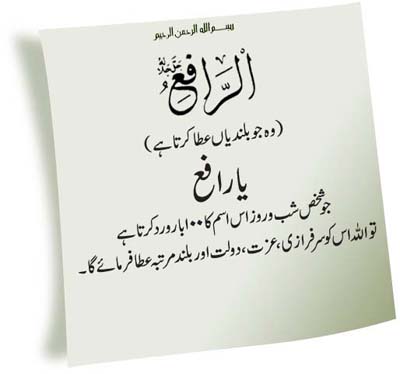 بسم الله الرحمن الرحيم
الرَّافِعُ جل جلالہ
(وہ جو بلندیاں عطا کرتا ہے)
یا رافع
جو شخص شب و روز اس اسم کا ۱۰۰ بار ورد کرتا ہے
تو اللہ اس کو سرفرازی، عزت، دولت اور بلند مرتبہ عطا فرمائے گا۔